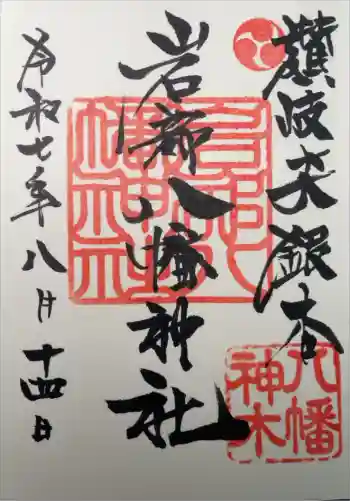 讃岐夫銀杏
岩部八幡神社
令和七年八月十四日
岩部八幡神社
八幡神木